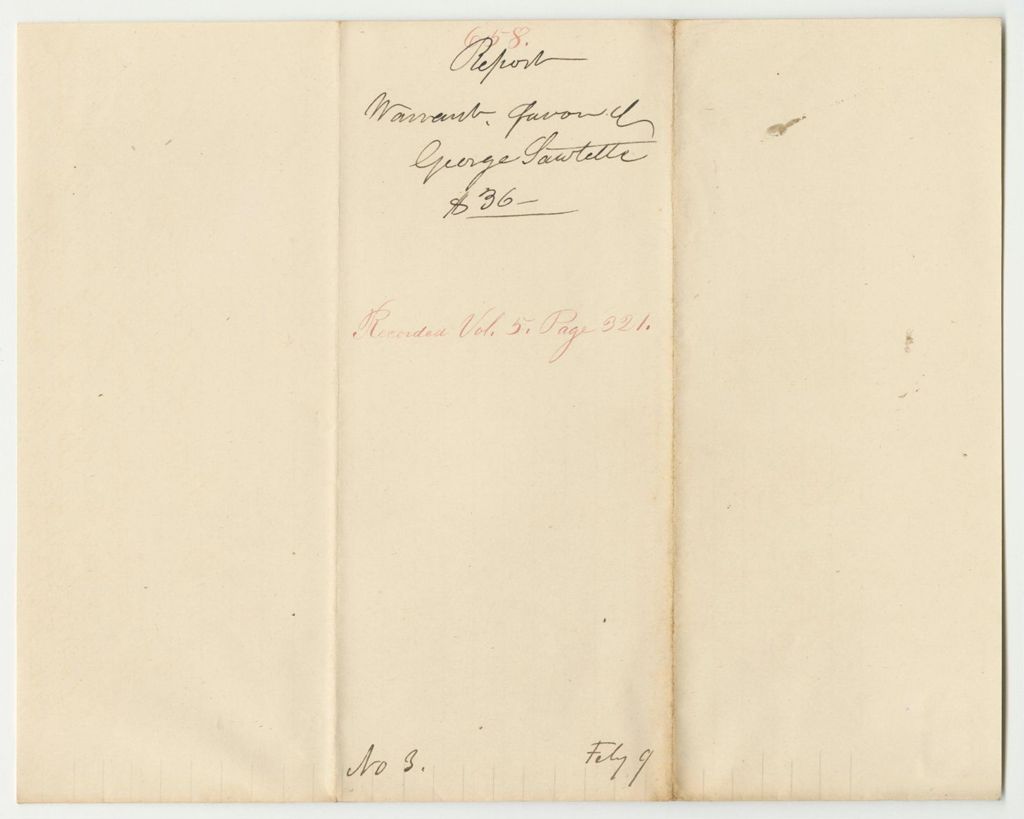 658.
Report
Warrant favor of
George Sawtelle
$36—
Recorded Vol. 5. Page 321.
No 3.
Feby 9